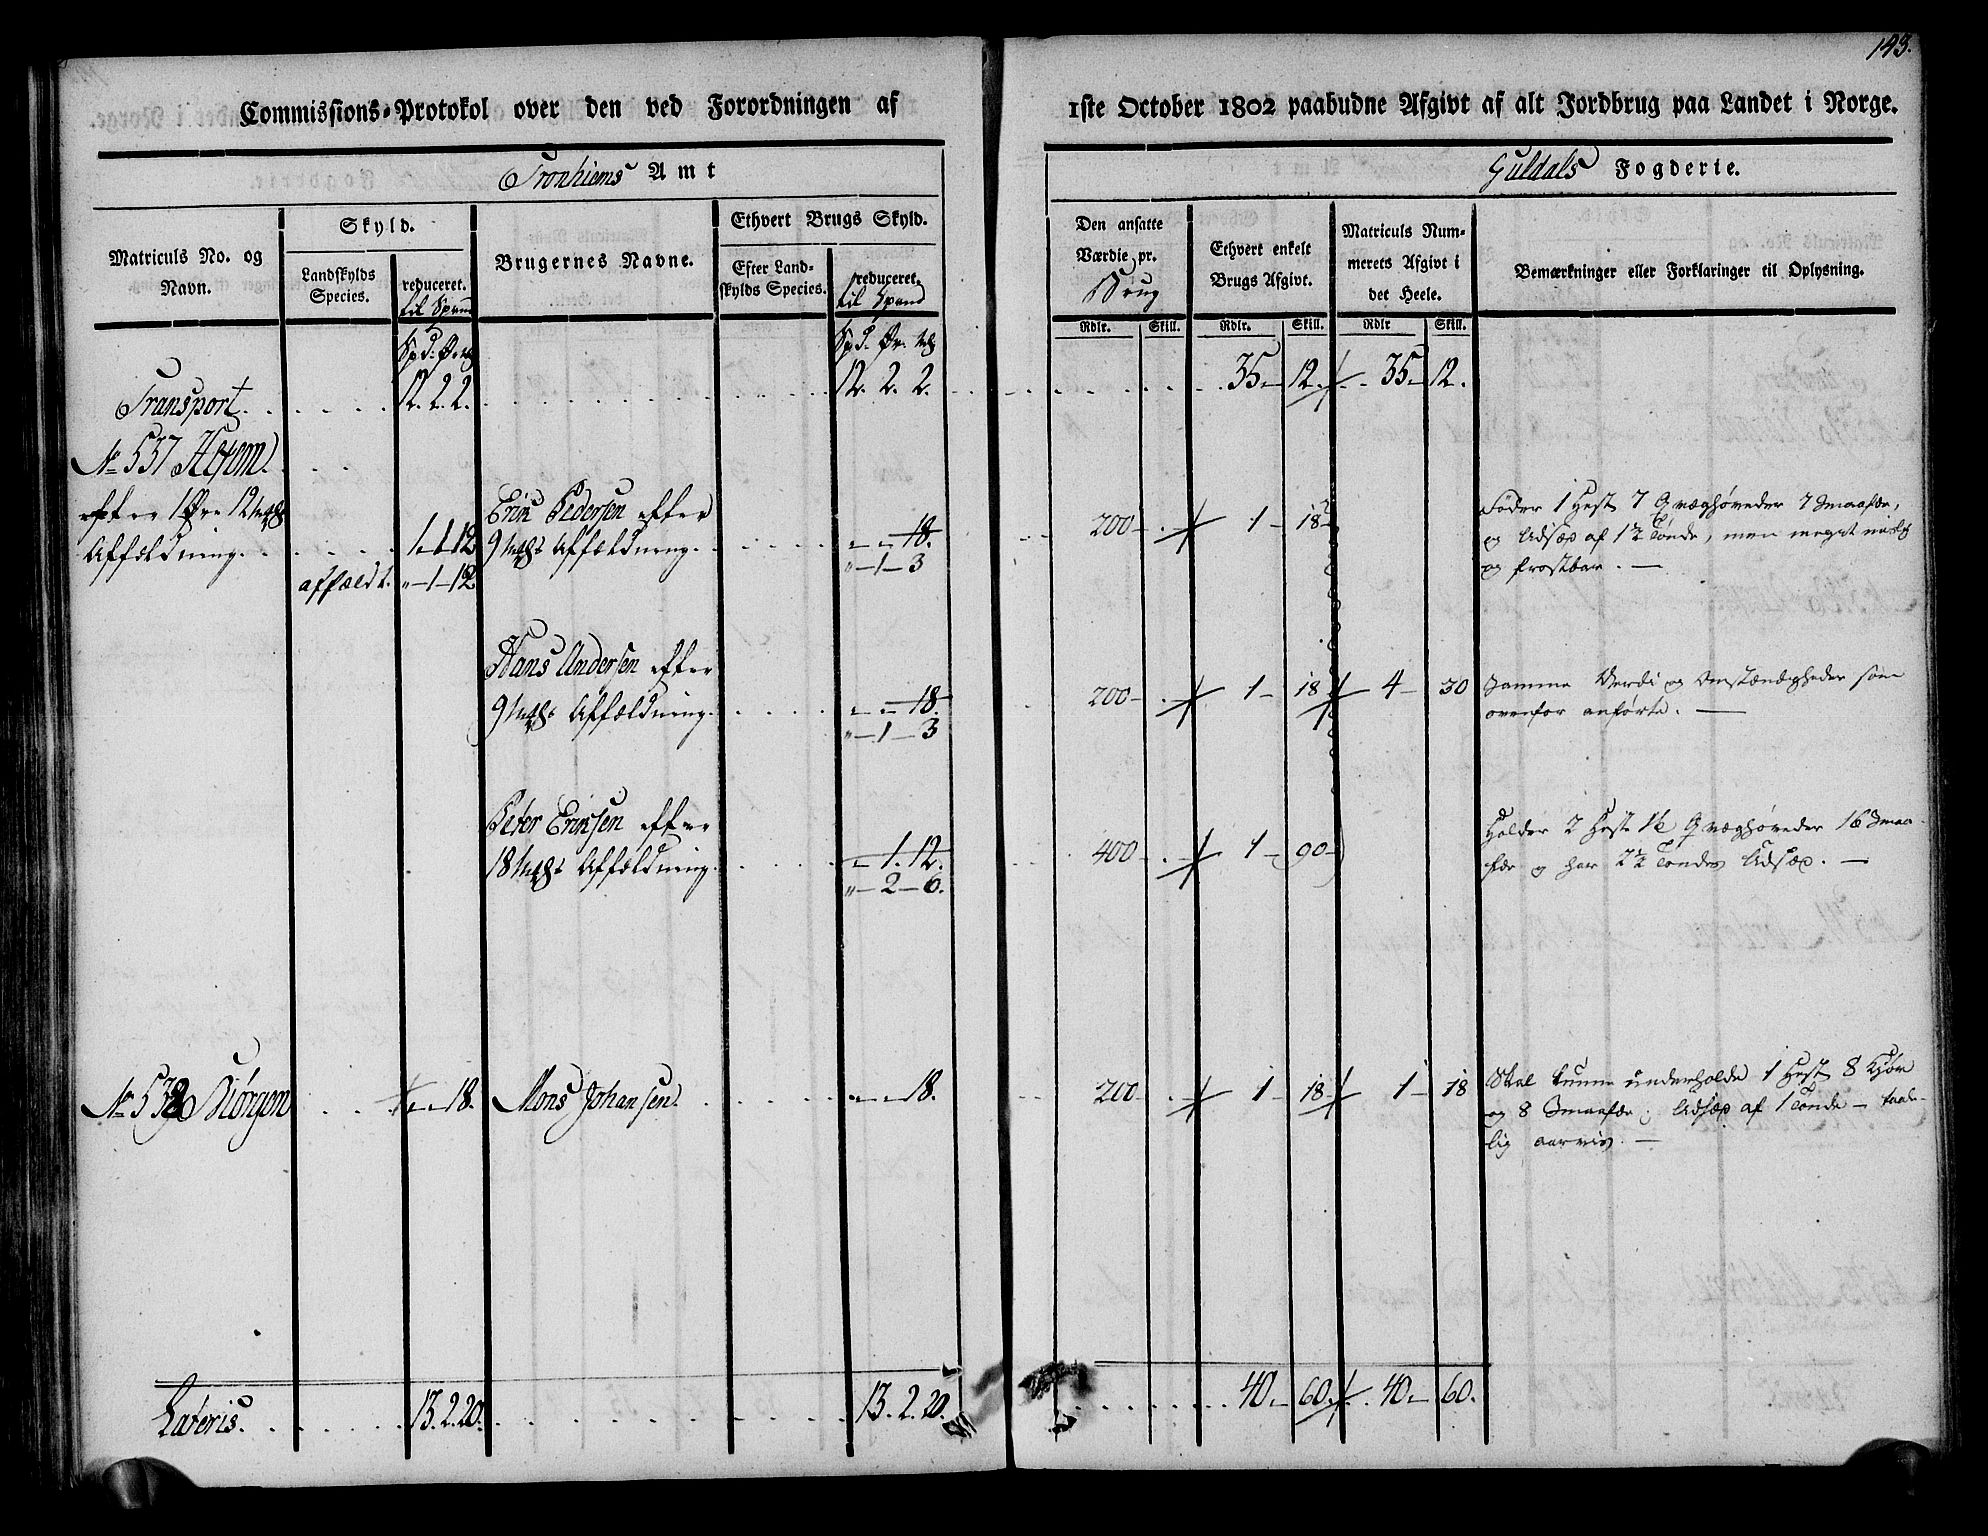 143.
Commissions-Protokol over den ved Forordningen af 1ste October 1802 paabudne Afgivt af alt Jordbrug paa Landet i Norge.
Tronhiems Amt
Guldals Fogderie.
Matriculs No. og Navn.
Skyld.
Landskylds Species.
reduceret. til Spand
Brugernes Navne.
Ethvert Brugs Skyld.
Efter Landskylds Species.
reduceret. til Spand
Den ansatte Værdie pr. Brug
Ethvert enkelt Brugs Afgivt.
Matriculs Nummerets Afgivt i det Heele.
Bemærkninger eller Forklaringer til Oplysning.
Rdlr. Skill. Rdlr. Skill. Rdlr Skill.
Spd. Ør. mk
Spd. Ør. mk
Transport. 12. 2. 2. 12. 2. 2. 35 12. 35 12.
No 537
efter 1 Øre 12 mk
Affældning. 1 12
affældt. " 1 12
Erik Pedersen efter
9 mk Affældning. 18. 200 1 18
" 1 3
Føder 1 Hest 7 Qvæghøveder 7 Smaafæe,
og Udsæd af 1½ Tønde, men meget
og frostbar.
Hans Andersen efter
9 mk Affældning. 18. 200 1 18 4 30
" 1 3
Samme Verdi og Omstændigheder som
ovenfor anførte.
Peter Eriksen efter
18 mk Affældning. 1. 12. 400 1 90
" 2 6.
Holder 2 Heste 16 Qvæghøveder 16 Smaa-
fæe og har 2½ Tønders Udsæd.
No 538 18. Mons Johansen. 18. 200 1 18 1 18
Skal kunne underholde 1 Hest 8 Kjør
og 8 Smaafæe; Udsæd af 1 Tønde
lig aarviis.
Lateris. 13. 2. 20. 13. 2. 20. 40 60. 40 60.